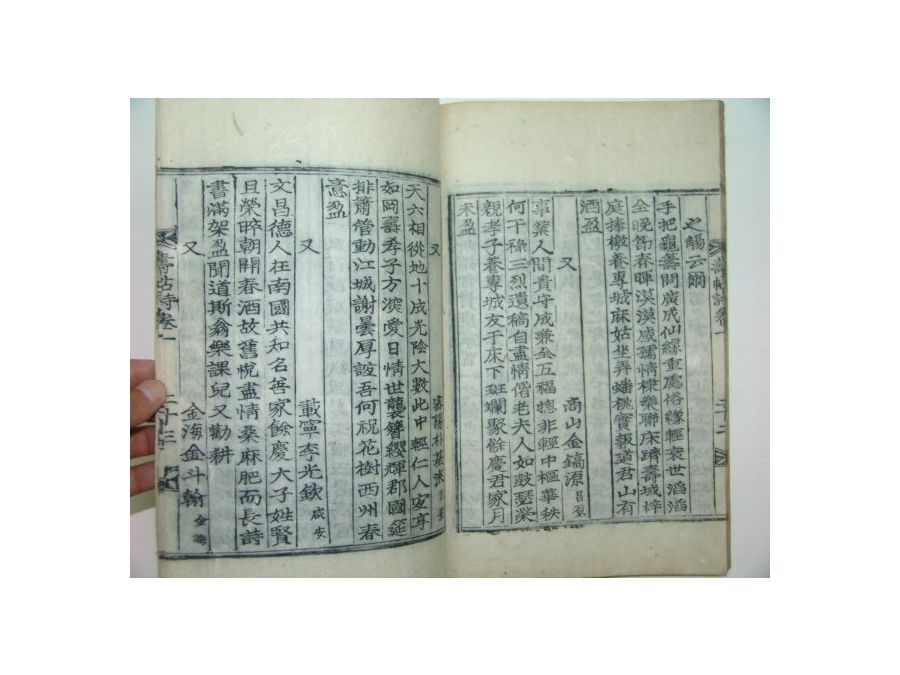 之觴云爾
手把龜籌問廣成仙緣重處俗緣輕衰世滔滔
全晩節春暉漠漠感孺情棣樂聯床躋壽域梓
庭捧檄養專城麻姑坐弄蟠桃實報道君山有
酒盈
又 商山金鎬源
事業人間貴守成兼全五福摠非輕中樞華秩
何干祿三烈遺稿自盡情偕老夫人如鼓瑟榮
親孝子養專城友于床下斑斕聚餘慶君家月
未盈
壽帖詩卷一
又
天六相從地十成光陰大數此中輕仁人安享
如岡壽孝子方深愛日情世襲簪纓輝郡國筵
排簫管動江城謝曇厚誼吾何祝花樹西州春
意盈
又 載寧李光欽 咸安
文昌德人在南國共知名善家餘慶大子姓賢
且榮晬朝開春酒故舊悅盡情桑麻肥而長詩
書滿架盈聞道斯翁樂課兒又勸耕
又 金海金斗翰 金海
壽帖詩卷一